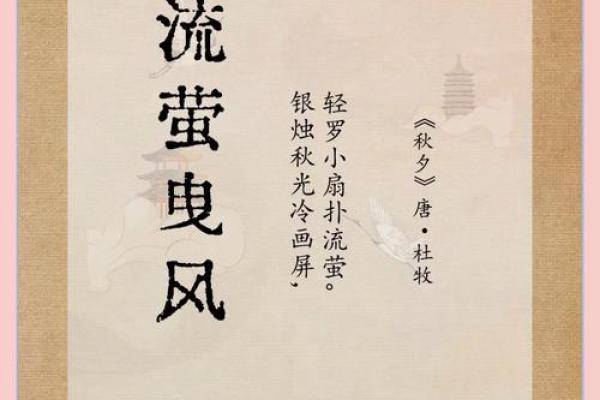 流萤曳风
银烛秋光冷画屏，
轻罗小扇扑流萤。
《秋夕》唐·杜牧